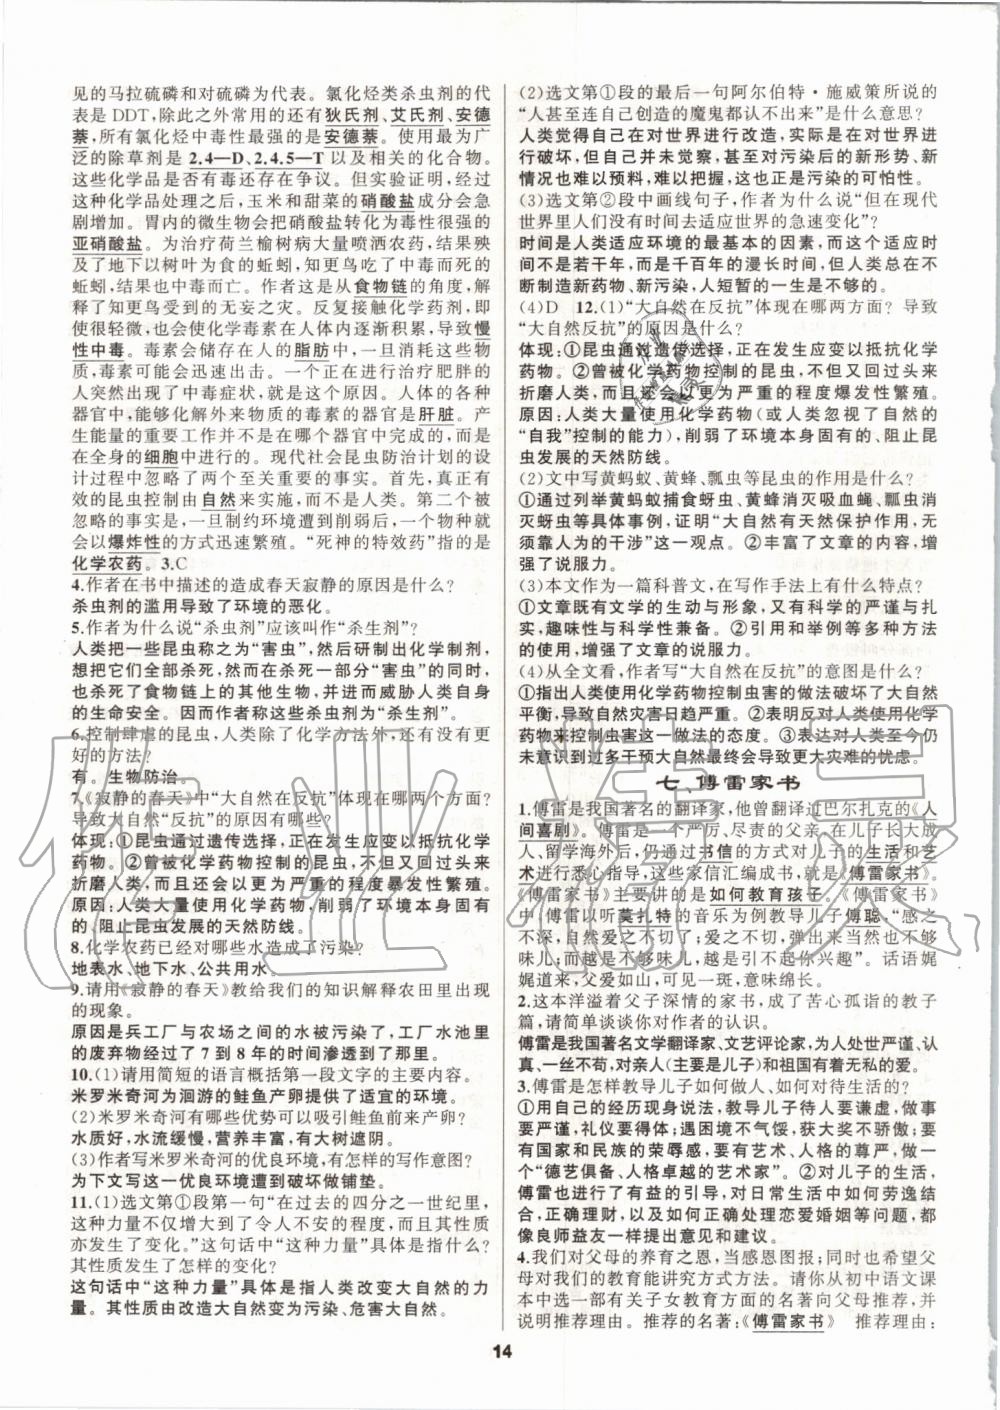 见的马拉硫磷和对硫磷为代表。氯化烃类杀虫剂的代
表是 DDT，除此之外常用的还有狄氏剂、艾氏剂、安德
萘，所有氯化烃中毒性最强的是安德萘。使用最为广
泛的除草剂是 2,4—D、2,4,5—T 以及相关的化合物。
这些化学品是否有毒还存在争议。但实验证明，经过
这种化学品处理之后，玉米和甜菜的硝酸盐成分会急
剧增加。胃内的微生物会把硝酸盐转化为毒性很强的
亚硝酸盐。为治疗荷兰榆树病大量喷洒农药，结果殃
及了地下以树叶为食的蚯蚓，知更鸟吃了中毒而死的
蚯蚓，结果也中毒而亡。作者是这从食物链的角度，解
释了知更鸟受到的无妄之灾。反复接触化学药剂，即
使很轻微，也会使化学毒素在人体内逐渐积累，导致慢
性中毒。毒素会储存在人的脂肪中，一旦消耗这些物
质，毒素可能会迅速出击。一个正在进行治疗肥胖的
人突然出现了中毒症状，就是这个原因。人体的各种
器官中，能够化解外来物质的毒素的器官是肝脏。产
生能量的重要工作并不是在哪个器官中完成的，而是
在全身的细胞中进行的。现代社会昆虫防治计划的设
计过程中忽略了两个至关重要的事实。首先，真正有
效的昆虫控制由自然来实施，而不是人类。第二个被
忽略的事实是，一旦制约环境遭到削弱，一个物种就会
以爆炸性的方式迅速繁殖。“死神的特效药”指的是
化学农药。3.C
4.作者在书中描述的造成春天寂静的原因是什么?
杀虫剂的滥用导致了环境的恶化。
5.作者为什么说“杀虫剂”应该叫作“杀生剂”?
人类把一些昆虫称之为“害虫”，然后研制出化学制剂，
想把它们全部杀死，然而在杀死一部分“害虫”的同时，
也杀死了食物链上的其他生物，并进而威胁人类自身
的生命安全。因而作者称这些杀虫剂为“杀生剂”。
6.控制肆虐的昆虫，人类除了化学方法外，还有没有更
好的方法?
有。生物防治。
7.《寂静的春天》中“大自然在反抗”体现在哪两个方面?
导致大自然“反抗”的原因有哪些?
体现：①昆虫通过遗传选择，正在发生应变以抵抗化学
药物。②曾被化学药物控制的昆虫，不但又回过头来
折磨人类，而且还会以更为严重的程度暴发性繁殖。
原因：人类大量使用化学药物，削弱了环境本身固有
的、阻止昆虫发展的天然防线。
8.化学农药已经对哪些水造成了污染?
地表水、地下水、公共用水。
9.请用《寂静的春天》教给我们的知识解释农田里出现
的现象。
原因是兵工厂与农场之间的水被污染了，工厂水池里
的废弃物经过了 7 到 8 年的时间渗透到了那里。
10.(1)请用简短的语言概括第一段文字的主要内容。
米罗米奇河为洄游的鲑鱼产卵提供了适宜的环境。
(2)米罗米奇河有哪些优势可以吸引鲑鱼前来产卵?
水质好，水流缓慢，营养丰富，有大树遮阴。
(3)作者写米罗米奇河的优良环境，有怎样的写作意图?
为下文写这一优良环境遭到破坏做铺垫。
11.(1)选文第①段第一句“在过去的四分之一世纪里，
这种力量不仅增大到了令人不安的程度，而且其性质
亦发生了变化。”这句话中“这种力量”具体是指什么?
其性质发生了怎样的变化?
这句话中“这种力量”具体是指人类改变大自然的力
量。其性质由改造大自然变为污染、危害大自然。
(2)选文第①段的最后一句阿尔伯特·施威策所说的
“人甚至连自己创造的魔鬼都认不出来”是什么意思?
人类觉得自己在对世界进行改造，实际是在对世界进
行破坏，但自己并未觉察，甚至对污染后的新形势、新
情况也难以预料，难以把握，这也正是污染的可怕性。
(3)选文第②段中画线句子，作者为什么说“但在现代
世界里人们没有时间去适应世界的急速变化”?
时间是人类适应环境的最基本的因素，而这个适应时
间不是若干年，而是千百年的漫长时间，但人类总在不
断制造新药物、新污染，人短暂的一生是不够的。
(4)D　12.(1)“大自然在反抗”体现在哪两方面? 导致
“大自然反抗”的原因是什么?
体现：①昆虫通过遗传选择，正在发生应变以抵抗化学
药物。②曾被化学药物控制的昆虫，不但又回过头来
折磨人类，而且还会以更为严重的程度爆发性繁殖。
原因：人类大量使用化学药物(或人类忽视了自然的
“自我”控制的能力)，削弱了环境本身固有的、阻止昆
虫发展的天然防线。
(2)文中写黄蚂蚁、黄蜂、瓢虫等昆虫的作用是什么?
①通过列举黄蚂蚁捕食蚜虫、黄蜂消灭吸血蝇、瓢虫消
灭蚜虫等具体事例，证明“大自然有天然保护作用，无
须靠人为的干涉”这一观点。②丰富了文章的内容，增
强了说服力。
(3)本文作为一篇科普文，在写作手法上有什么特点?
①文章既有文学的生动与形象，又有科学的严谨与扎
实，趣味性与科学性兼备。②引用和举例等多种方法
的使用，增强了文章的说服力。
(4)从全文看，作者写“大自然在反抗”的意图是什么?
①指出人类使用化学药物控制虫害的做法破坏了大自然
平衡，导致自然灾害日趋严重。②表明反对人类使用化学
药物来控制虫害这一做法的态度。③表达对人类至今仍
未意识到过多干预大自然最终会导致更大灾难的忧虑。
七、傅雷家书
1.傅雷是我国著名的翻译家，他曾翻译过巴尔扎克的《人
间喜剧》。傅雷是一个严厉、尽责的父亲，在儿子长大成
人、留学海外后，仍通过书信的方式对儿子的生活和艺
术进行悉心指导，这些家信汇编成书，就是《傅雷家书》。
《傅雷家书》主要讲的是如何教育孩子。《傅雷家书》
中，傅雷以听莫扎特的音乐为例教导儿子傅聪，“感之
不深，自然爱之不切了；爱之不切，弹出来当然也不够
味儿；而越是不够味儿，越是引不起你兴趣”。话语娓
娓道来，父爱如山，可见一斑，意味绵长。
2.这本洋溢着父子深情的家书，成了苦心孤诣的教子
篇，请简单谈谈你对作者的认识。
傅雷是我国著名文学翻译家、文艺评论家，为人处世严谨、认
真、一丝不苟，对亲人(主要是儿子)和祖国有着无私的爱。
3.傅雷是怎样教导儿子如何做人、如何对待生活的?
①用自己的经历现身说法，教导儿子待人要谦虚，做事
要严谨，礼仪要得体；遇困境不气馁，获大奖不骄傲；要
有国家和民族的荣辱感，要有艺术、人格的尊严，做一
个“德艺俱备、人格卓越的艺术家”。②对儿子的生活，
傅雷也进行了有益的引导，对日常生活中如何劳逸结
合，正确理财，以及如何正确处理恋爱婚姻等问题，都
像良师益友一样提出意见和建议。
4.我们对父母的养育之恩，当感恩图报；同时也希望父
母对我们的教育能讲究方式方法。请你从初中语文课
本中选一部有关子女教育方面的名著向父母推荐，并
说明推荐理由。推荐的名著：《傅雷家书》　推荐理由：
14
作业精灵